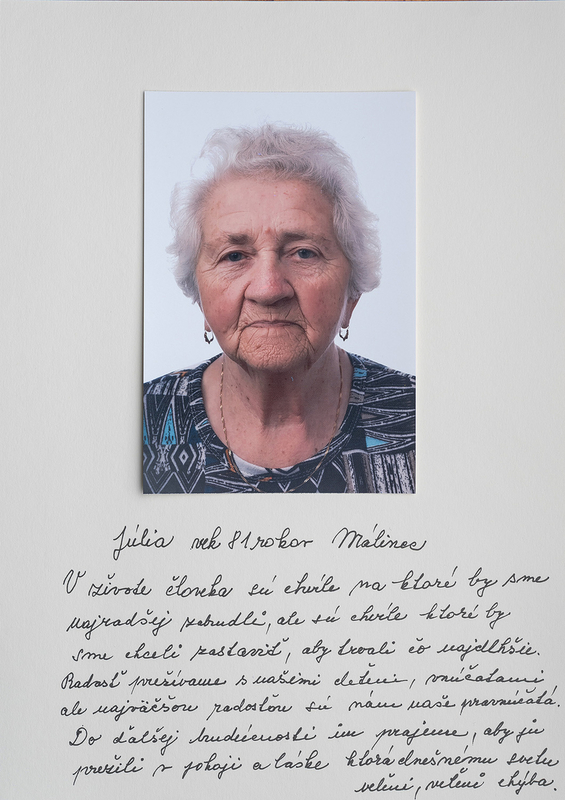 Júlia vek 81 rokov Málinec
V živote človeka sú chvíle na ktoré by sme
najradšej zabudli, ale sú chvíle ktoré by
sme chceli zastaviť, aby trvali čo najdlhšie.
Radosť prežívame s našimi deťmi, vnúčatami
ale najväčšou radosťou sú nám naše pravnúčatá.
Do ďalšej budúcnosti im prajeme, aby ju
prežili v pokoji a láske ktorá dnešnému svetu
velmi, velmi chýba.